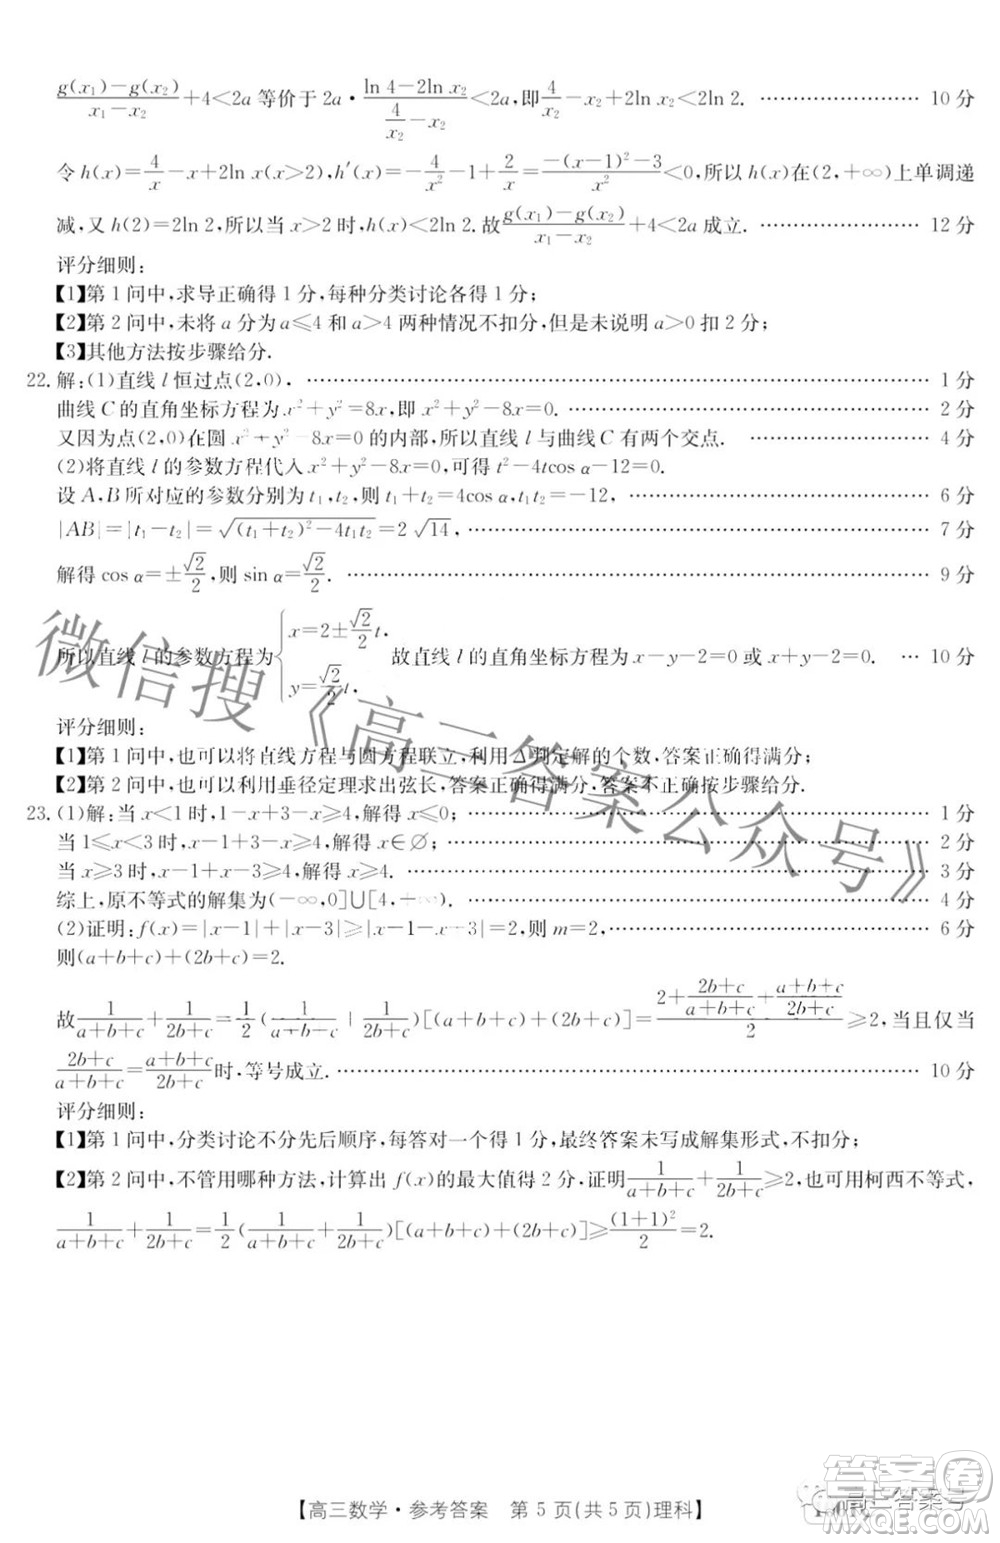 (g(x₁)−g(x₂))/(x₁−x₂)+4<2a 等价于 2a·(ln 4−2ln x₂)/(4/x₂−x₂)<2a,即 4/x₂−x₂+2ln x₂<2ln 2. …… 10 分
令 h(x)=4/x−x+2ln x(x>2),h′(x)=−4/x²−1+2/x=(−(x−1)²−3)/x²<0,所以 h(x)在(2,+∞)上单调递
减,又 h(2)=2ln 2,所以当 x>2 时,h(x)<2ln 2.故(g(x₁)−g(x₂))/(x₁−x₂)+4<2a 成立. …… 12 分
评分细则:
【1】第 1 问中,求导正确得 1 分,每种分类讨论各得 1 分;
【2】第 2 问中,未将 a 分为 a≤4 和 a>4 两种情况不扣分,但是未说明 a>0 扣 2 分;
【3】其他方法按步骤给分.
22.解:(1)直线 l 恒过点(2,0), …… 1 分
曲线 C 的直角坐标方程为 x²+y²=8x,即 x²+y²−8x=0. …… 2 分
又因为点(2,0)在圆 x²+y²−8x=0 的内部,所以直线 l 与曲线 C 有两个交点. …… 4 分
(2)将直线 l 的参数方程代入 x²+y²−8x=0,可得 t²−4tcos α−12=0.
设 A,B 所对应的参数分别为 t₁,t₂,则 t₁+t₂=4cos α,t₁t₂=−12, …… 6 分
|AB|=|t₁−t₂|=√((t₁+t₂)²−4t₁t₂)=2√14, …… 7 分
解得 cos α=±√2/2,则 sin α=√2/2. …… 9 分
所以直线 l 的参数方程为{x=2±√2/2 t, y=√2/2 t, 故直线 l 的直角坐标方程为 x−y−2=0 或 x+y−2=0. … 10 分
评分细则:
【1】第 1 问中,也可以将直线方程与圆方程联立,利用 Δ 判定解的个数,答案正确得满分;
【2】第 2 问中,也可以利用垂径定理求出弦长,答案正确得满分,答案不正确按步骤给分.
23.(1)解:当 x<1 时,1−x+3−x≥4,解得 x≤0; …… 1 分
当 1≤x<3 时,x−1+3−x≥4,解得 x∈∅; …… 2 分
当 x≥3 时,x−1+x−3≥4,解得 x≥4. …… 3 分
综上,原不等式的解集为(−∞,0]∪[4,+∞). …… 4 分
(2)证明:f(x)=|x−1|+|x−3|≥|x−1−x+3|=2,则 m=2, …… 6 分
则(a+b+c)+(2b+c)=2.
故 1/(a+b+c)+1/(2b+c)=1/2(1/(a+b+c)+1/(2b+c))[(a+b+c)+(2b+c)]=(2+(2b+c)/(a+b+c)+(a+b+c)/(2b+c))/2≥2,当且仅当
(2b+c)/(a+b+c)=(a+b+c)/(2b+c)时,等号成立. …… 10 分
评分细则:
【1】第 1 问中,分类讨论不分先后顺序,每答对一个得 1 分,最终答案未写成解集形式,不扣分;
【2】第 2 问中,不管用哪种方法,计算出 f(x)的最大值得 2 分,证明 1/(a+b+c)+1/(2b+c)≥2,也可以用柯西不等式,
1/(a+b+c)+1/(2b+c)=1/2(1/(a+b+c)+1/(2b+c))[(a+b+c)+(2b+c)]≥(1+1)²/2=2.
微信搜《高三答案公众号》
【高三数学·参考答案 第 5 页(共 5 页)理科】
答案卷
高三答案号